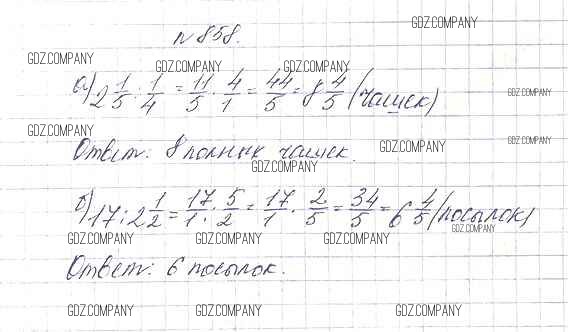 GDZ.COMPANY
N 858.
GDZ.COMPANY GDZ.COMPANY GDZ.COMPANY
а) 2 1/5 : 1/4 = 11/5 · 4/1 = 44/5 = 8 4/5 (чашек)
GDZ.COMPANY
GDZ.COMPANY GDZ.COMPANY
Ответ: 8 полных чашек.
GDZ.COMPANY GDZ.COMPANY
б) 17 : 2 1/2 = 17/1 : 5/2 = 17/1 · 2/5 = 34/5 = 6 4/5 (посылок)
GDZ.COMPANY
GDZ.COMPANY GDZ.COMPANY GDZ.COMPANY
Ответ: 6 посылок.
GDZ.COMPANY GDZ.COMPANY GDZ.COMPANY